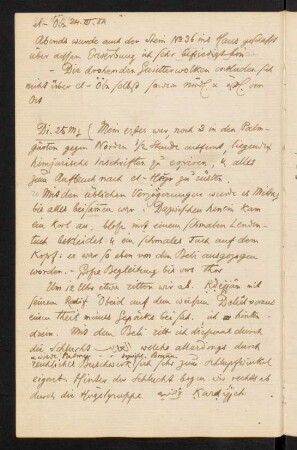 el-ʿÖla 24. III. 84
Abends wurde auch der Stein № 36 ins Haus geschafft
über dessen Erwerbung ich sehr befriedigt bin.
– Die drohenden Gewitterwolken entluden sich
nicht über el-ʿÖla selbst sondern
Ort
Di. 25 III. Mein erster war noch 3 in den Palm-
gärten gegen Norden 1/2 Stunde aufwärts liegenden
himjarische Inschriften zu copiren, & alles
zum Aufbruch nach el-Ḥegr zu rüsten.
Mit den üblichen Verzögerungen wurde es Mittag
bis alles beisammen war. Dazwischen hinein kam
ein Kerl an, bloss mit einem schmalen Lenden-
tuch bekleidet & ein schmales Tuch auf dem
Kopf: er war so eben von den Beli ausgezogen
worden. – Grosse Begleitung bis vors Thor
Um 12 Uhr etwa ritten wir ab.
seinem Redîf auf dem weissen Delûl voraus
einen Theil meines Gepäcks bei sich. ich hinten-
drein. Mit dem Beli ritt ich durch
die Schlucht welche allerdings durch
reichliches Buschwerk sich sehr zum Schlupfwinkel
eignet. Hinter der Schlucht bogen wir rechts ab
durch die Hügelgruppe